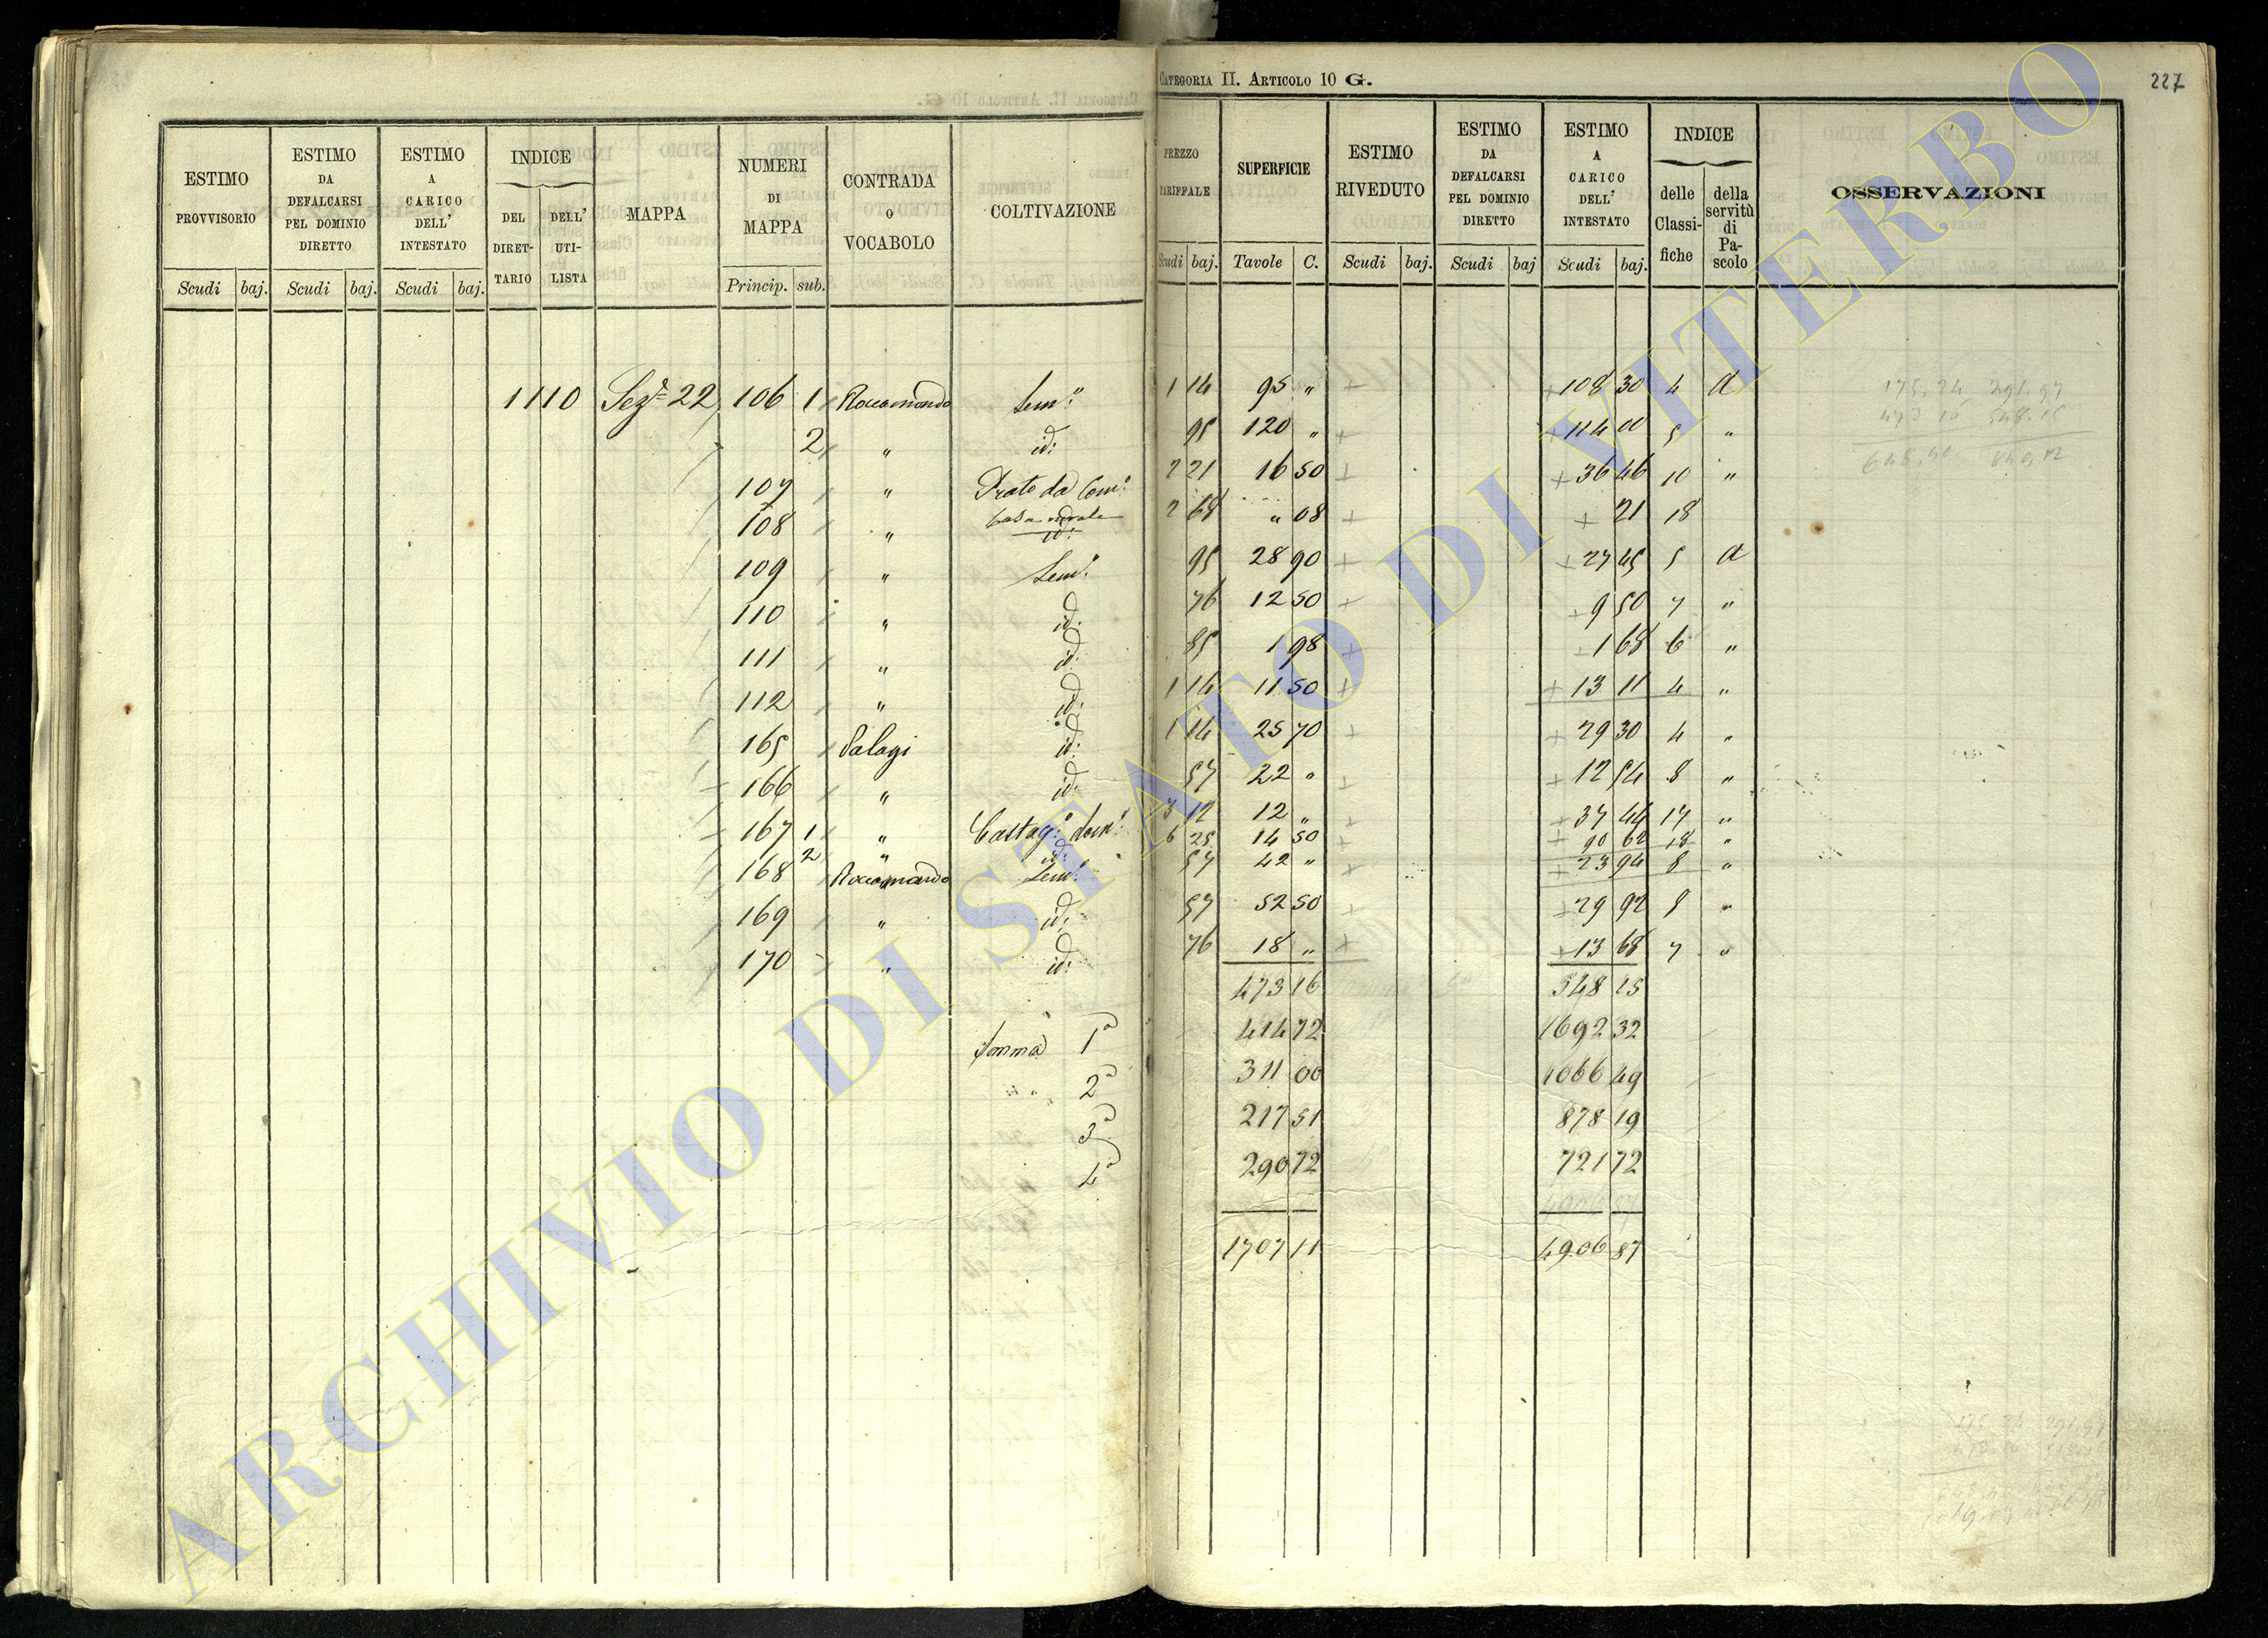 CATEGORIA II. ARTICOLO 10 G.
227
ESTIMO PROVVISORIO Scudi baj.
ESTIMO DA DEFALCARSI PEL DOMINIO DIRETTO Scudi baj.
ESTIMO A CARICO DELL' INTESTATO Scudi baj.
INDICE DEL DIRET-TARIO DELL' UTI-LISTA
MAPPA
NUMERI DI MAPPA Princip. sub.
CONTRADA O VOCABOLO
COLTIVAZIONE
PREZZO TARIFFALE Scudi baj.
SUPERFICIE Tavole C.
ESTIMO RIVEDUTO Scudi baj.
ESTIMO DA DEFALCARSI PEL DOMINIO DIRETTO Scudi baj
ESTIMO A CARICO DELL' INTESTATO Scudi baj.
INDICE delle Classi-fiche della servitù di Pa-scolo
OSSERVAZIONI
1110 Sezᵉ 22 106 1 Roccamando Semᵒ 1 14 95 " 108 30 4 a
2 " id: 95 120 " 114 00 5 "
107 " Prato da Comᵉ 2 21 16 50 36 46 10 "
108 " Casa rurale id: 2 68 " 08 21 18
109 " Semᵒ 95 28 90 27 45 5 a
110 " id: 76 12 50 9 50 7 "
111 " id: 85 1 98 1 68 6 "
112 " id: 1 14 11 50 13 11 4 "
165 Palagi id: 1 14 25 70 29 30 4 "
166 " id: 57 22 " 12 54 8 "
167 1 " Castagᵒ domᵒ 3 12 12 " 37 44 17 "
2 " id: 6 25 14 50 90 62 18 "
168 Roccamando Semᵒ 57 42 " 23 94 8 "
169 " id: 57 52 50 29 92 8 "
170 " id: 76 18 " 13 68 7 "
473 16 548 15
Somma 1ᵃ 414 72 1692 32
" 2ᵃ 311 00 1066 49
3ᵃ 217 51 878 19
4ᵃ 290 72 721 72
1707 11 4906 87
ARCHIVIO DI STATO DI VITERBO